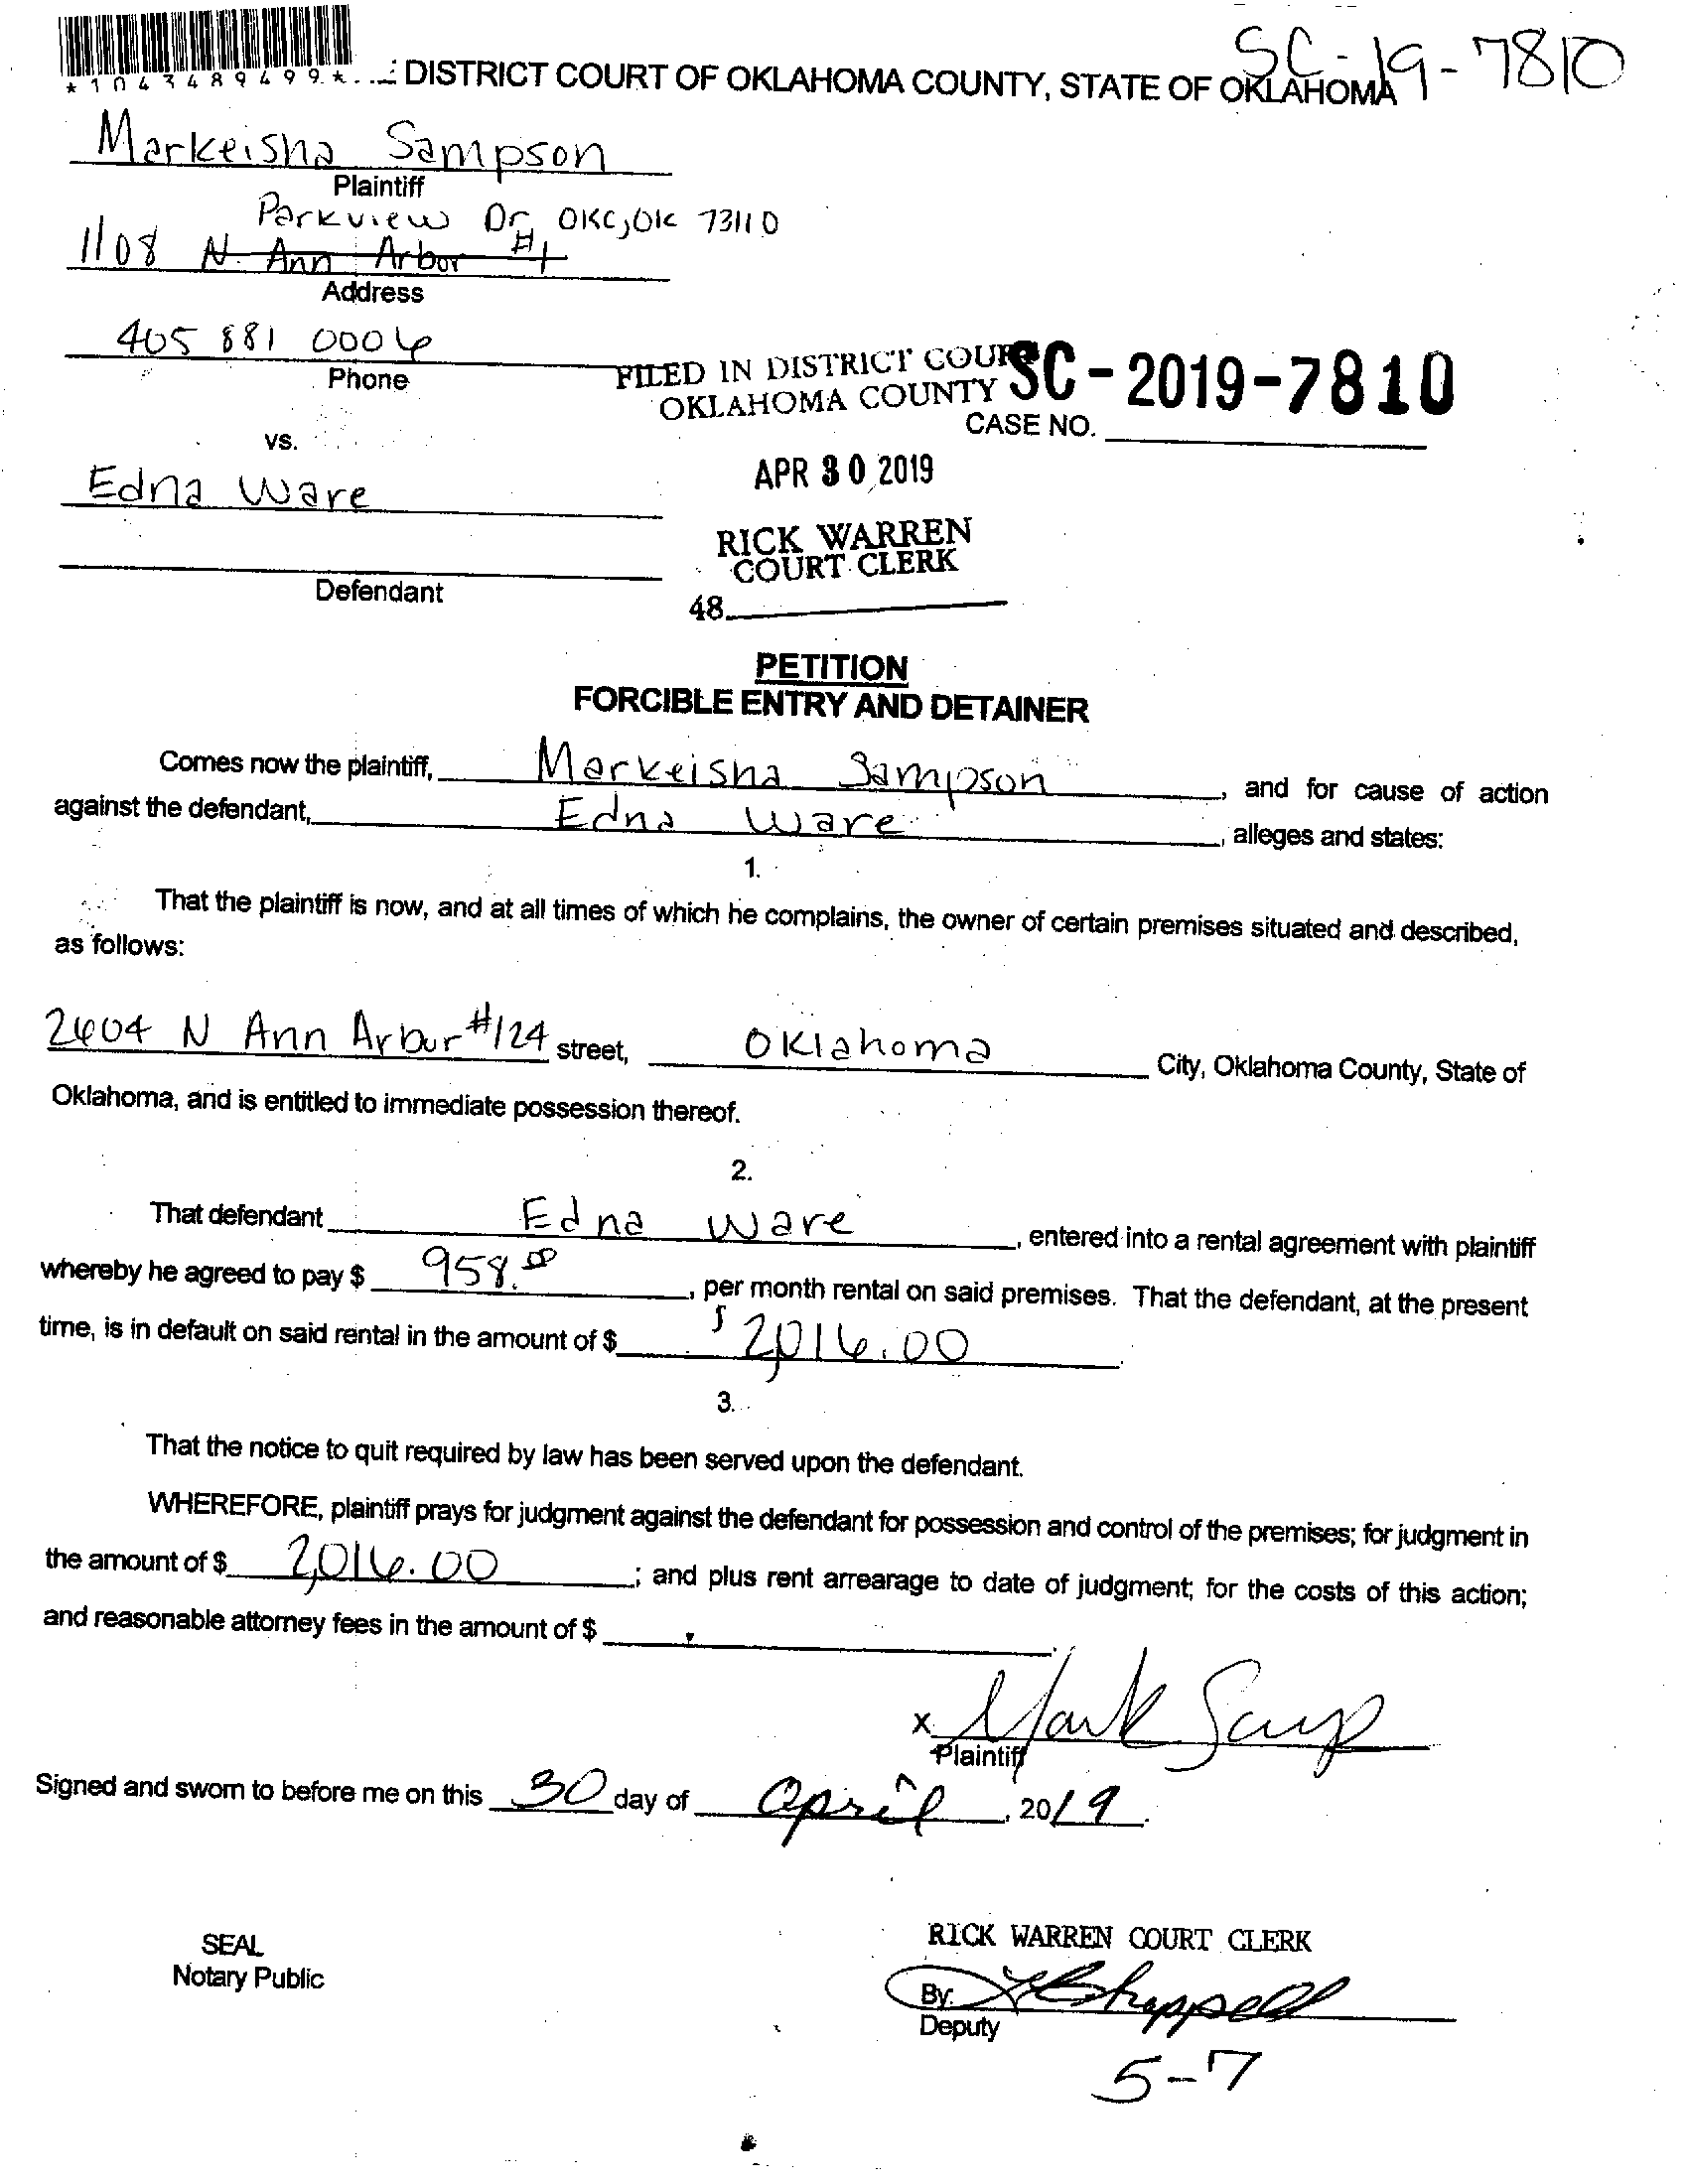 SC-19-7810
*1043489499* DISTRICT COURT OF OKLAHOMA COUNTY, STATE OF OKLAHOMA
Markeisha Sampson
Plaintiff
Parkview Dr, OKC, OK 73110
1108 N. Ann Arbor #1
Address
405 881 0006
Phone
FILED IN DISTRICT COURT
OKLAHOMA COUNTY
SC-2019-7810
CASE NO.
vs.
APR 30 2019
Edna Ware
RICK WARREN
COURT CLERK
Defendant
48
PETITION
FORCIBLE ENTRY AND DETAINER
Comes now the plaintiff, Markeisha Sampson, and for cause of action
against the defendant, Edna Ware, alleges and states:
1.
That the plaintiff is now, and at all times of which he complains, the owner of certain premises situated and described,
as follows:
2604 N Ann Arbor #124 street, Oklahoma City, Oklahoma County, State of
Oklahoma, and is entitled to immediate possession thereof.
2.
That defendant Edna Ware, entered into a rental agreement with plaintiff
whereby he agreed to pay $ 958.00, per month rental on said premises. That the defendant, at the present
time, is in default on said rental in the amount of $ $2,016.00.
3.
That the notice to quit required by law has been served upon the defendant.
WHEREFORE, plaintiff prays for judgment against the defendant for possession and control of the premises; for judgment in
the amount of $ 2,016.00; and plus rent arrearage to date of judgment; for the costs of this action;
and reasonable attorney fees in the amount of $
x Mark Samp
Plaintiff
Signed and sworn to before me on this 30 day of April, 2019.
SEAL
Notary Public
RICK WARREN COURT CLERK
By:
Deputy
5-7